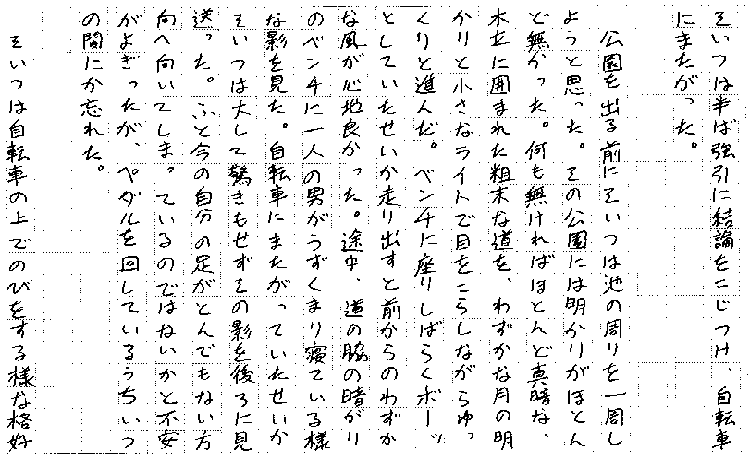 そいつは半ば強引に結論をこじつけ、自転車
にまたがった。
公園を出る前にそいつは池の周りを一周し
ようと思った。その公園には明かりがほとん
ど無かった。何も無ければほとんど真暗な、
木立に囲まれた粗末な道を、わずかな月の明
かりと小さなライトで目をこらしながらゆっ
くりと進んだ。ベンチに座りしばらくボーッ
としていたせいか走り出すと前からのわずか
な風が心地良かった。途中、道の脇の暗がり
のベンチに一人の男がうずくまり寝ている様
な影を見た。自転車にまたがっていたせいか
そいつは大して驚きもせずその影を後ろに見
送った。ふと今の自分の足がとんでもない方
向へ向いてしまっているのではないかと不安
がよぎったが、ペダルを回しているうちいつ
の間にか忘れた。
そいつは自転車の上でのびをする様な格好